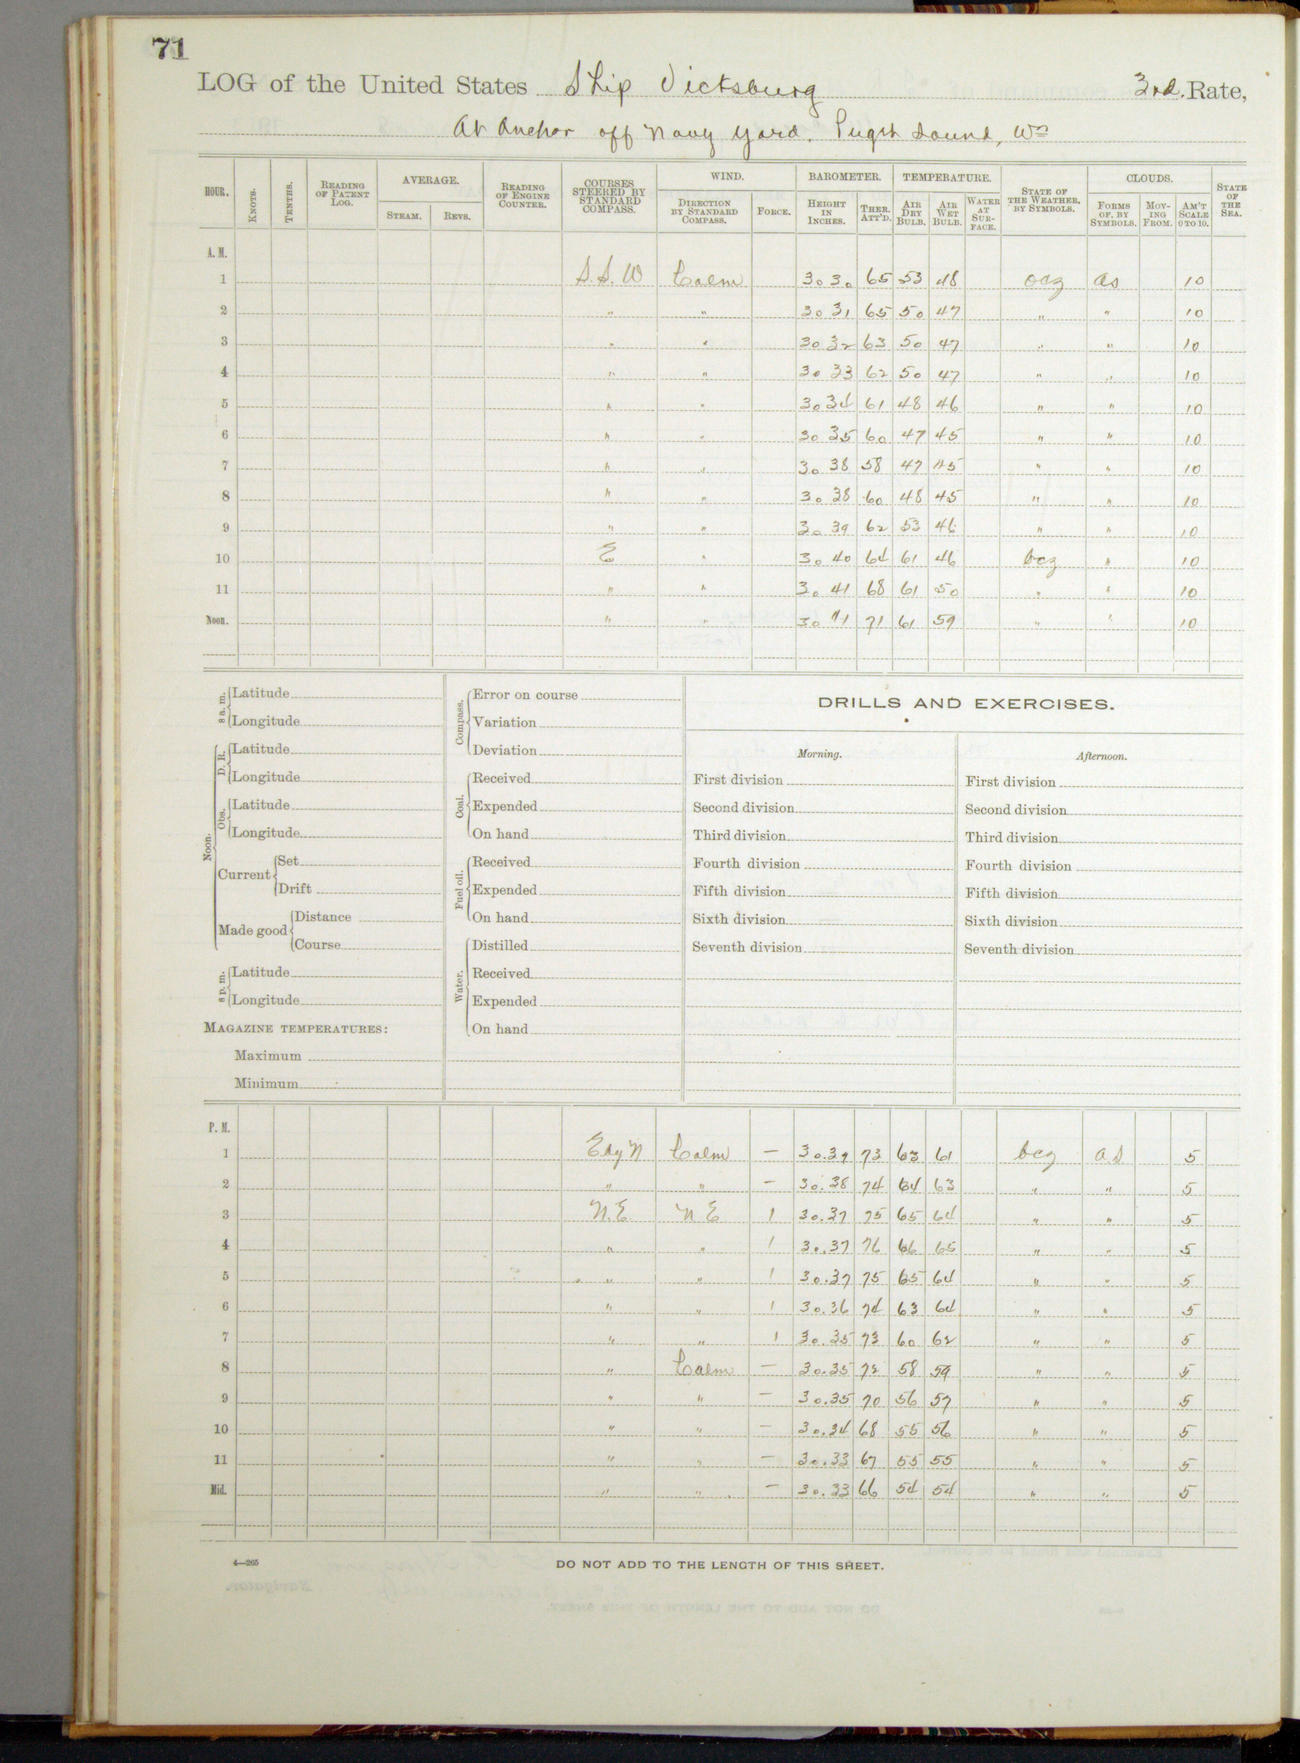 71
LOG of the United States Ship Vicksburg 3rd. Rate,
At Anchor off Navy Yard. Puget Sound, Wn
HOUR. KNOTS. TENTHS. READING OF PATENT LOG. AVERAGE. STEAM. REVS. READING OF ENGINE COUNTER. COURSES STEERED BY STANDARD COMPASS. WIND. DIRECTION BY STANDARD COMPASS. FORCE. BAROMETER. HEIGHT IN INCHES. THER. ATT'D. TEMPERATURE. AIR DRY BULB. AIR WET BULB. WATER AT SURFACE. STATE OF THE WEATHER, BY SYMBOLS. CLOUDS. FORMS OF, BY SYMBOLS. MOVING FROM. AM'T SCALE 0 TO 10. STATE OF THE SEA.
A. M.
1 S.S.W Calm 30 30 65 53 48 ocz as 10
2 " " 30 31 65 50 47 " " 10
3 " " 30 32 63 50 47 " " 10
4 " " 30 33 62 50 47 " " 10
5 " " 30 34 61 48 46 " " 10
6 " " 30 35 60 47 45 " " 10
7 " " 30 38 58 47 45 " " 10
8 " " 30 38 60 48 45 " " 10
9 " " 30 39 62 53 46 " " 10
10 E " 30 40 64 61 46 bcz " 10
11 " " 30 41 68 61 50 " " 10
Noon. " " 30 41 71 61 59 " " 10
8 a. m. Latitude
Longitude
Noon. D. R. Latitude
Longitude
Obs. Latitude
Longitude
Current Set
Drift
Made good Distance
Course
8 p. m. Latitude
Longitude
MAGAZINE TEMPERATURES:
Maximum
Minimum
Compass. Error on course
Variation
Deviation
Coal. Received
Expended
On hand
Fuel oil. Received
Expended
On hand
Water. Distilled
Received
Expended
On hand
DRILLS AND EXERCISES.
Morning.
First division
Second division
Third division
Fourth division
Fifth division
Sixth division
Seventh division
Afternoon.
First division
Second division
Third division
Fourth division
Fifth division
Sixth division
Seventh division
P. M.
1 ExN Calm — 30.39 73 63 61 bcz as 5
2 " " — 30.38 74 64 63 " " 5
3 N.E. NE 1 30.37 75 65 64 " " 5
4 " " 1 30.37 76 66 65 " " 5
5 " " 1 30.37 75 65 64 " " 5
6 " " 1 30.36 74 63 64 " " 5
7 " " 1 30.35 73 60 62 " " 5
8 " Calm — 30.35 72 58 59 " " 5
9 " " — 30.35 70 56 57 " " 5
10 " " — 30.34 68 55 56 " " 5
11 " " — 30.33 67 55 55 " " 5
Mid. " " — 30.33 66 54 54 " " 5
4—265
DO NOT ADD TO THE LENGTH OF THIS SHEET.